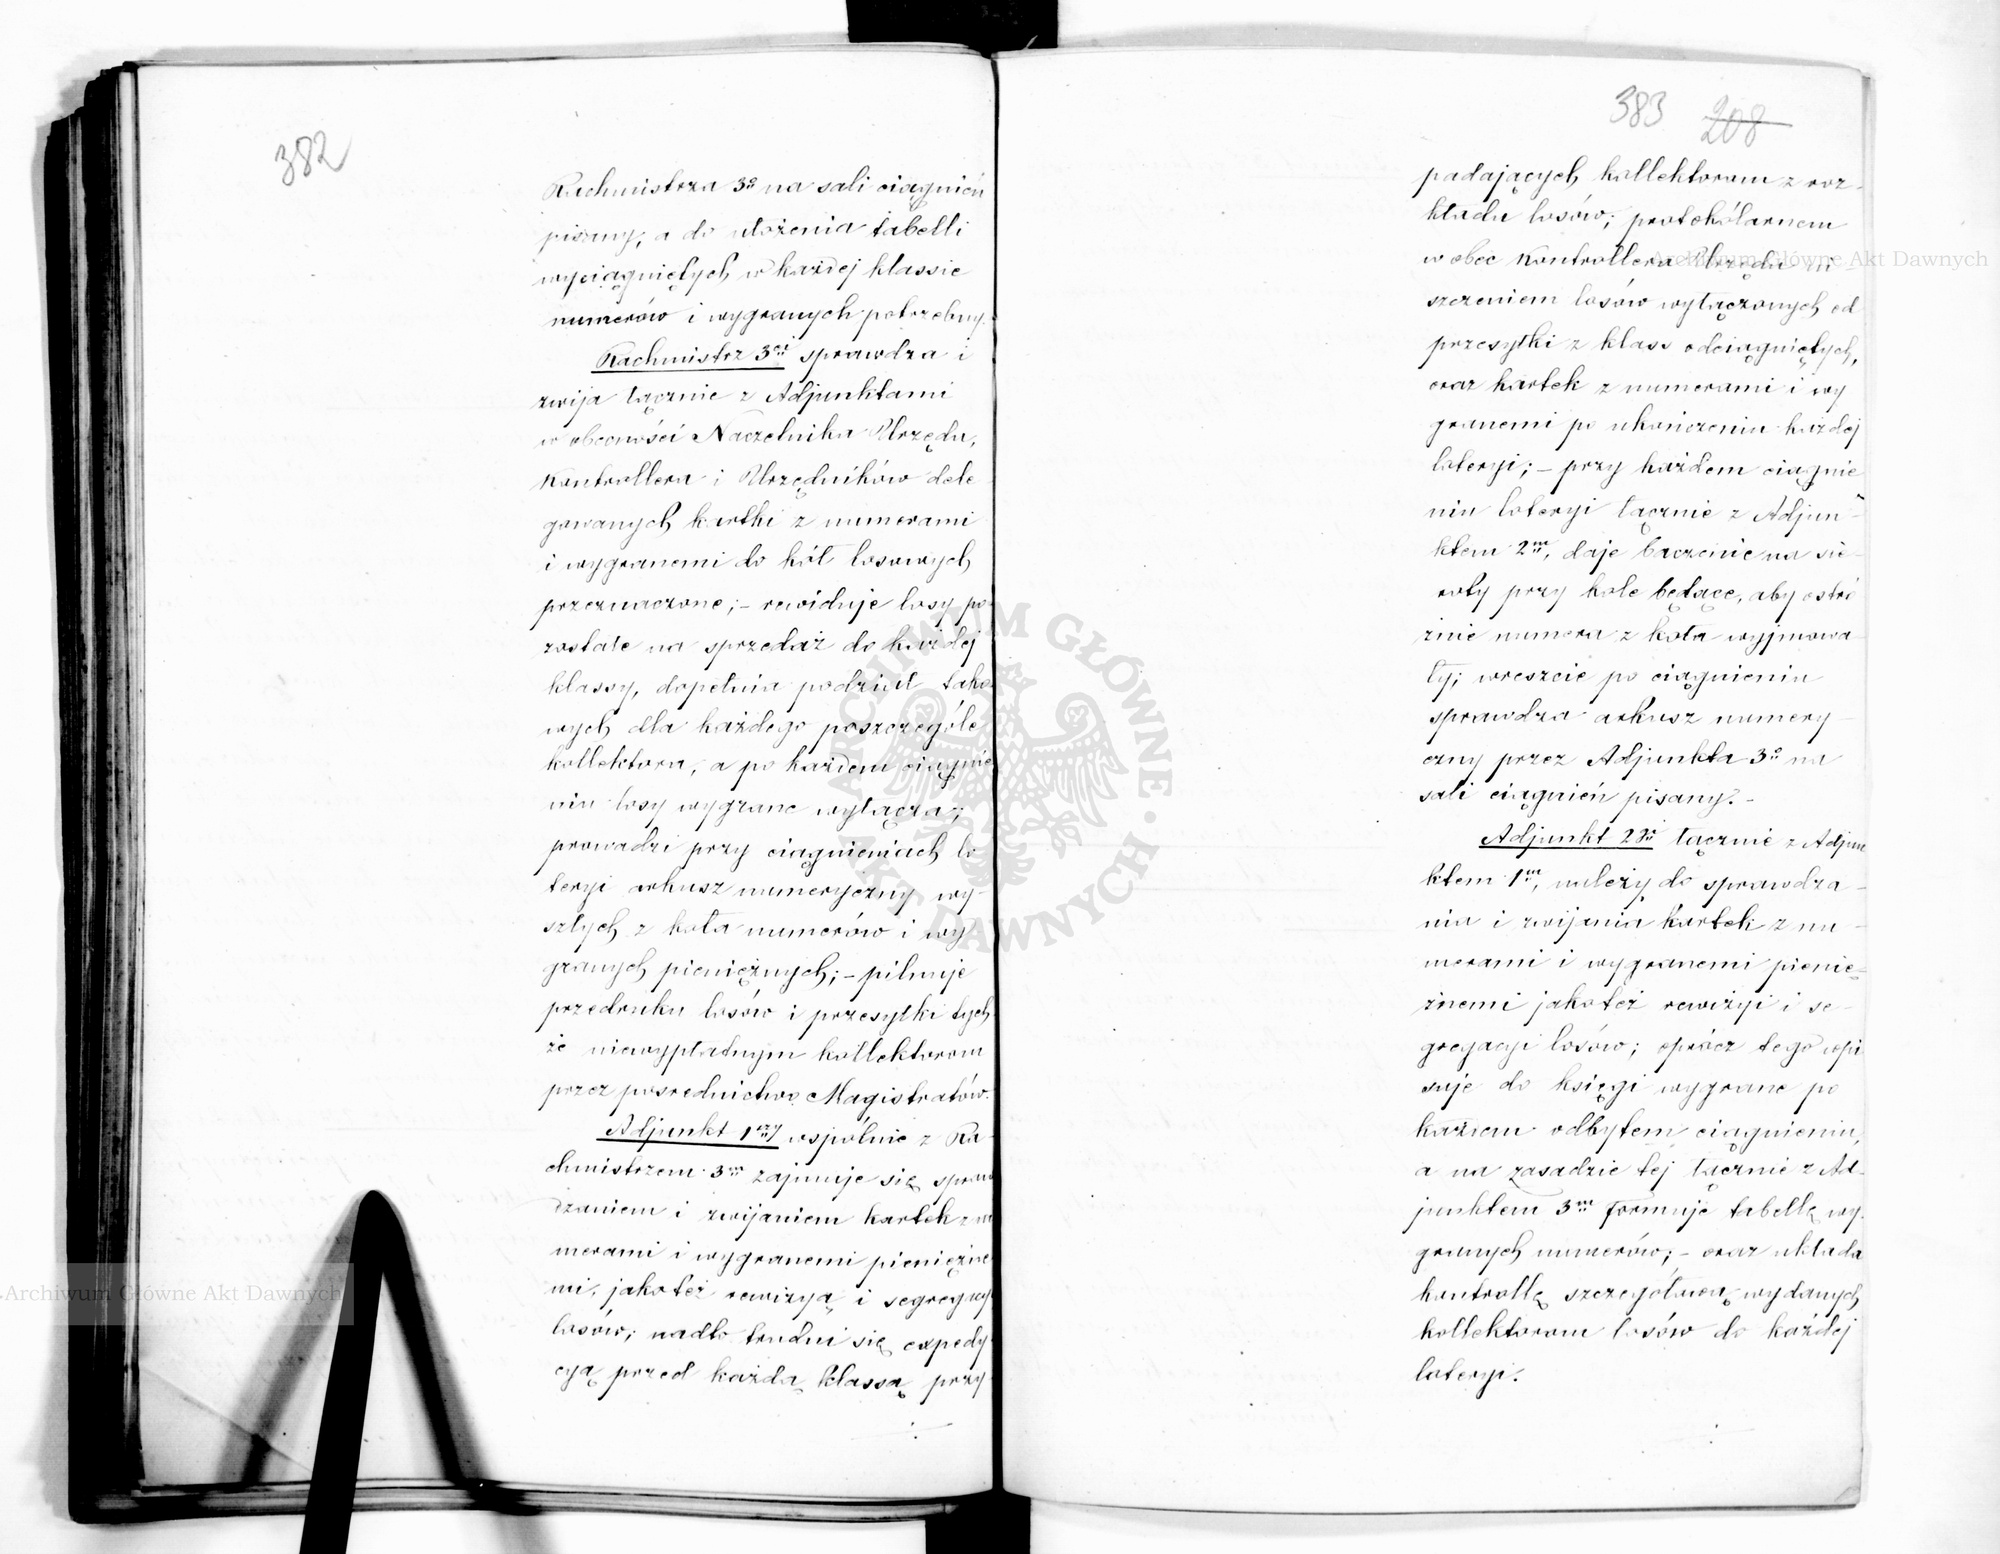 382
Rachmistrza 3º na sali ciągnień
pisany, a do ułożenia tabelli
wyciągniętych w każdej klassie
numerów i wygranych potrzebny.
Rachmistrz 3ci sprawdza i
zwija łącznie z Adjunktami
w obecności Naczelnika Urzędu,
Kontrollera i Urzędników dele
gowanych kartki z numerami
i wygranemi do kół losowych
przeznaczone; – rewiduje losy po
zostałe na sprzedaż do każdej
klassy, dopełnia podział tako
wych dla każdego poszczególe
kollektora, a po każdem ciągnie
niu losy wygrane wyłącza;
prowadzi przy ciągnieniach lo
teryi arkusz numeryczny wy-
szłych z koła numerów i wy
granych pieniężnych; – pilnuje
przedruku losów i przesyłki tych
że niewypłatnym kollektorom
przez pośrednictwo Magistratów.
Adjunkt 1szy wspólnie z Ra-
chmistrzem 3m zajmuje się spraw
dzaniem i zwijaniem kartek z nu
merami i wygranemi pieniężne
mi, jakoteż rewizyą i segregacy
losów; nadto trudni się expedy
cyą przed każdą klassą przy
383 208
padających kollektorom z roz-
kładu losów; protokólarnem
w obec Kontrollera Urzędu ni
szczeniem losów wyłączonych od
przesyłki z klass odciągniętych,
oraz kartek z numerami i wy
granemi po ukończeniu każdej
loteryi; – przy każdem ciągnie
niu loteryi łącznie z Adjun-
ktem 2m, daje baczenie na sie-
roty przy kole będące, aby ostro
żnie numera z koła wyjmowa
ły; wreszcie po ciągnieniu
sprawdza arkusz numery-
czny przez Adjunkta 3º na
sali ciągnień pisany. –
Adjunkt 2gi łącznie z Adjun
ktem 1m, należy do sprawdza-
nia i zwijania kartek z nu-
merami i wygranemi pienię-
żnemi jakoteż rewizyi i se-
gregacyi losów; oprócz tego wpi
suje do księgi wygrane po
każdem odbytem ciągnieniu,
a na zasadzie tej łącznie z Ad-
junktem 3m formuje tabellę wy-
granych numerów; – oraz układa
kontrollę szczegółową wydanych
kollektorom losów do każdej
loteryi.
Archiwum Główne Akt Dawnych
Archiwum Główne Akt Dawnych
ARCHIWUM GŁÓWNE AKT DAWNYCH